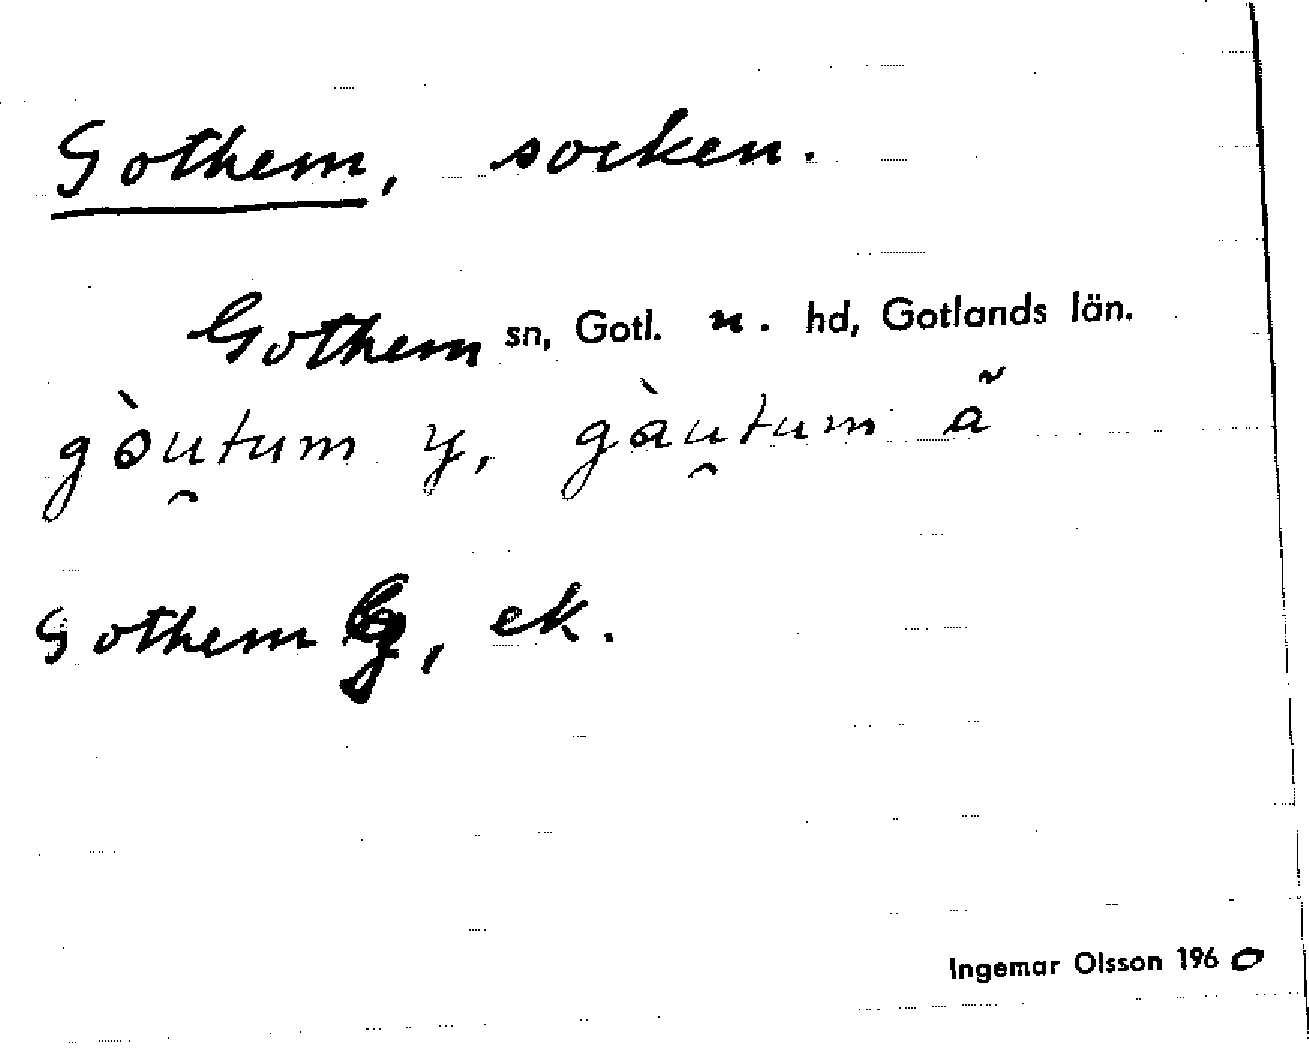 Gothem, socken.
Gothem sn, Gotl. n. hd, Gotlands län.
gòu̯tum y, gàu̯tum ã
Gothem, ek.
Ingemar Olsson 1960